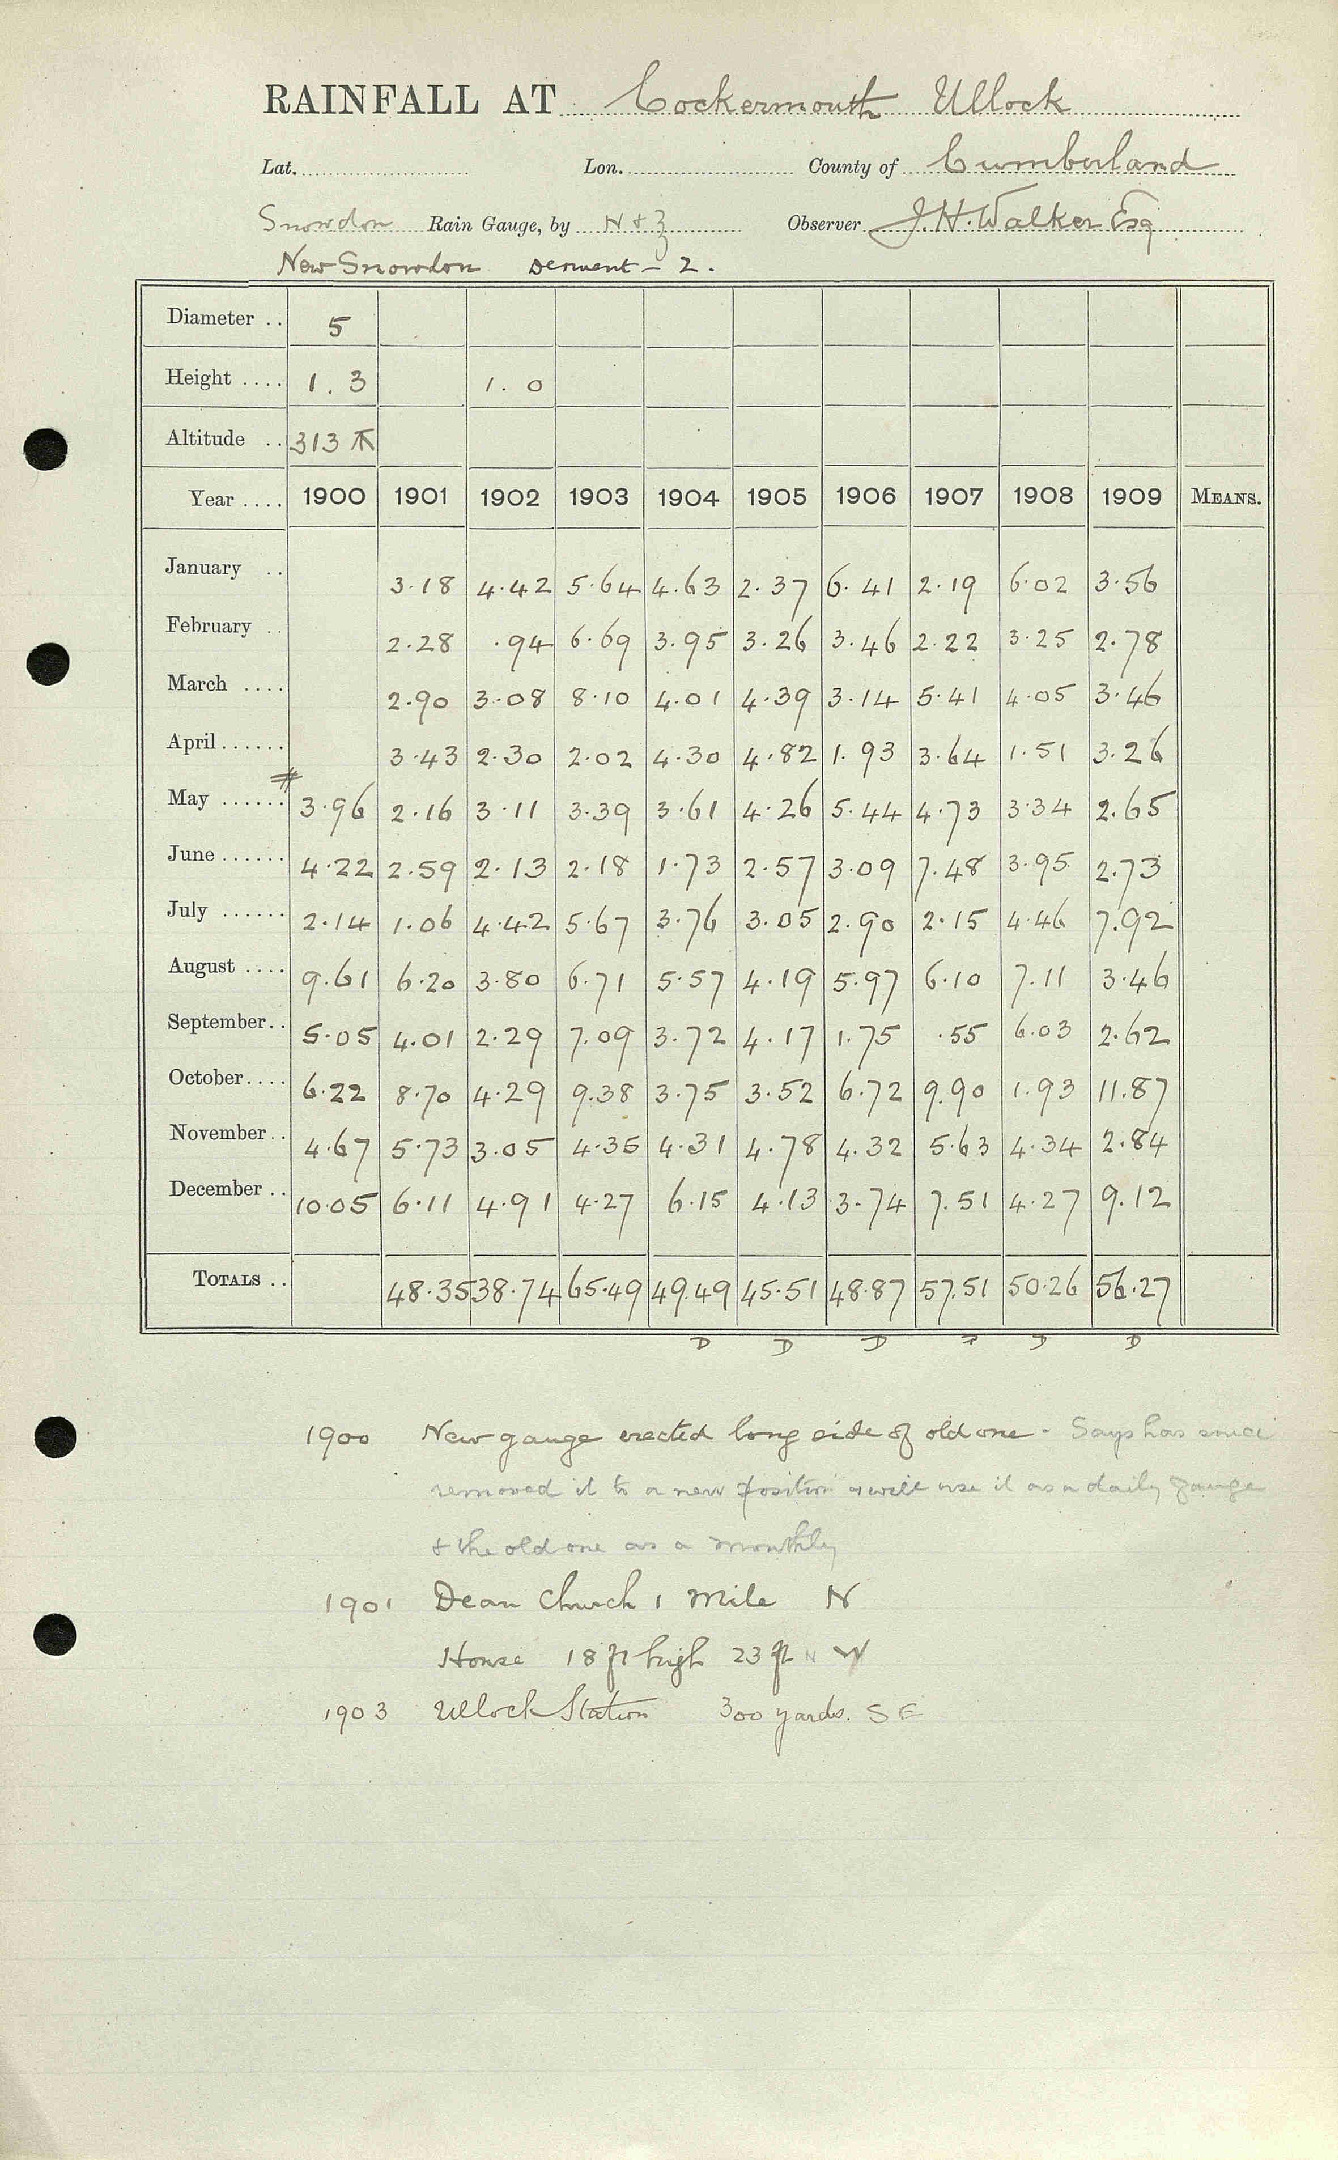 RAINFALL AT Cockermouth Ullock
Lat. Lon. County of Cumberland
Snowdon Rain Gauge, by N & Z Observer J. H. Walker Esq
New Snowdon Derwent - 2.
Diameter .. 5
Height .... 1.3 1.0
Altitude .. 313
Year .... 1900 1901 1902 1903 1904 1905 1906 1907 1908 1909 MEANS.
January .. 3.18 4.42 5.64 4.63 2.37 6.41 2.19 6.02 3.56
February .. 2.28 .94 6.69 3.95 3.26 3.46 2.22 3.25 2.78
March .... 2.90 3.08 8.10 4.01 4.39 3.14 5.41 4.05 3.46
April...... 3.43 2.30 2.02 4.30 4.82 1.93 3.64 1.51 3.26
May ...... 3.96 2.16 3.11 3.39 3.61 4.26 5.44 4.73 3.34 2.65
June...... 4.22 2.59 2.13 2.18 1.73 2.57 3.09 7.48 3.95 2.73
July ...... 2.14 1.06 4.42 5.67 3.76 3.05 2.90 2.15 4.46 7.92
August .... 9.61 6.20 3.80 6.71 5.57 4.19 5.97 6.10 7.11 3.46
September.. 5.05 4.01 2.29 7.09 3.72 4.17 1.75 .55 6.03 2.62
October.... 6.22 8.70 4.29 9.38 3.75 3.52 6.72 9.90 1.93 11.87
November.. 4.67 5.73 3.05 4.35 4.31 4.78 4.32 5.63 4.34 2.84
December .. 10.05 6.11 4.91 4.27 6.15 4.13 3.74 7.51 4.27 9.12
TOTALS .. 48.35 38.74 65.49 49.49 45.51 48.87 57.51 50.26 56.27
D D D D D
1900 New gauge erected long side of old one - Says has since
removed it to a new position & will use it as a daily gauge
& the old one as a monthly
1901 Dean Church 1 mile N
House 18 ft high 23 ft W
1903 Ullock Station 300 yards. SE